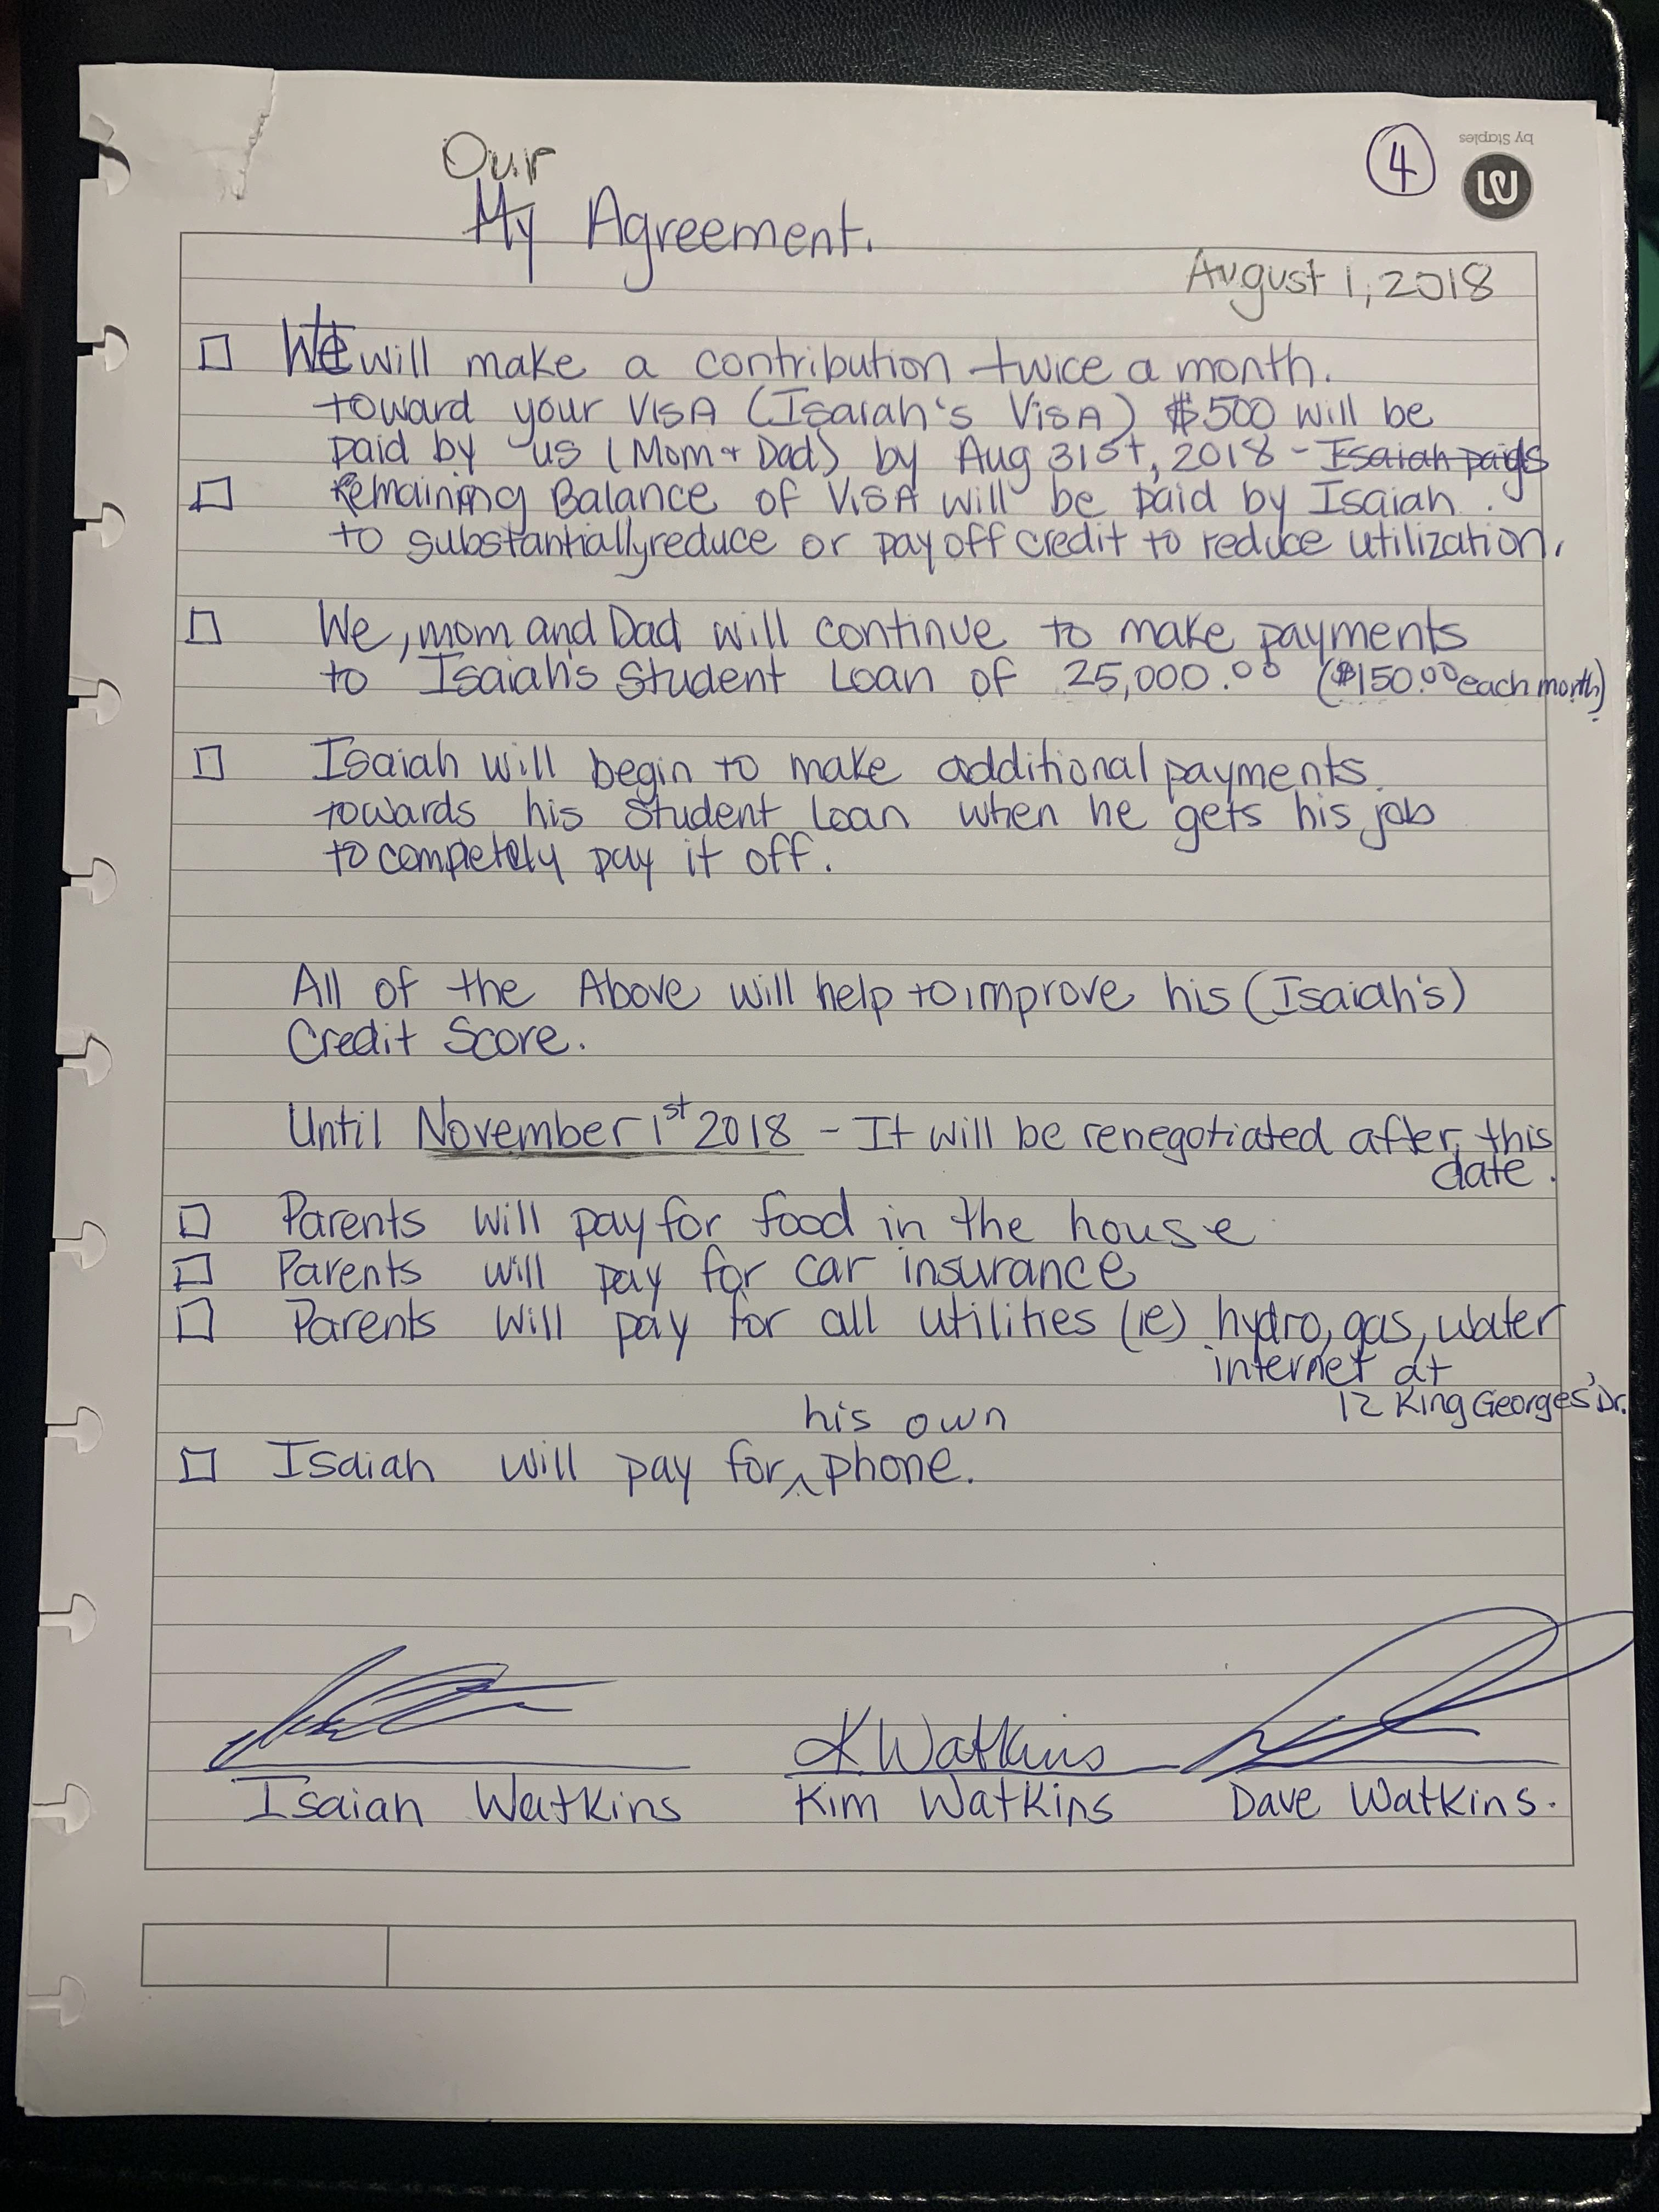 by Staples
4
Our
My Agreement.
August 1, 2018
We will make a contribution twice a month.
toward your VISA (Isaiah's VISA) $500 will be
paid by us (Mom + Dad) by Aug 31st, 2018 - Isaiah pays
Remaining Balance of VISA will be paid by Isaiah.
to substantially reduce or pay off credit to reduce utilization.
We, mom and Dad will continue to make payments
to Isaiah's Student Loan of 25,000.00 ($150.00 each month)
Isaiah will begin to make additional payments
towards his Student Loan when he gets his job
to completely pay it off.
All of the Above will help to improve his (Isaiah's)
Credit Score.
Until November 1st 2018 - It will be renegotiated after this
date.
Parents will pay for food in the house
Parents will pay for car insurance
Parents will pay for all utilities (ie) hydro, gas, water
internet at
12 King Georges' Dr.
his own
Isaiah will pay for ^ phone.
K Watkins
Isaiah Watkins Kim Watkins Dave Watkins.